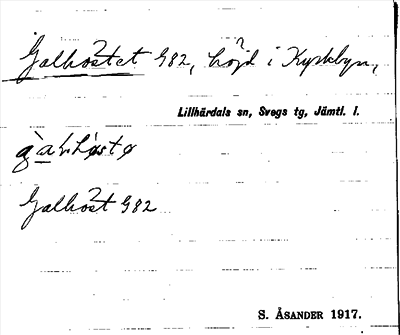 Galhostet 982, höjd i Kyrkbyn,
Lillhärdals sn, Svegs tg, Jämtl. l.
Galhost 982
S. ÅSANDER 1917.